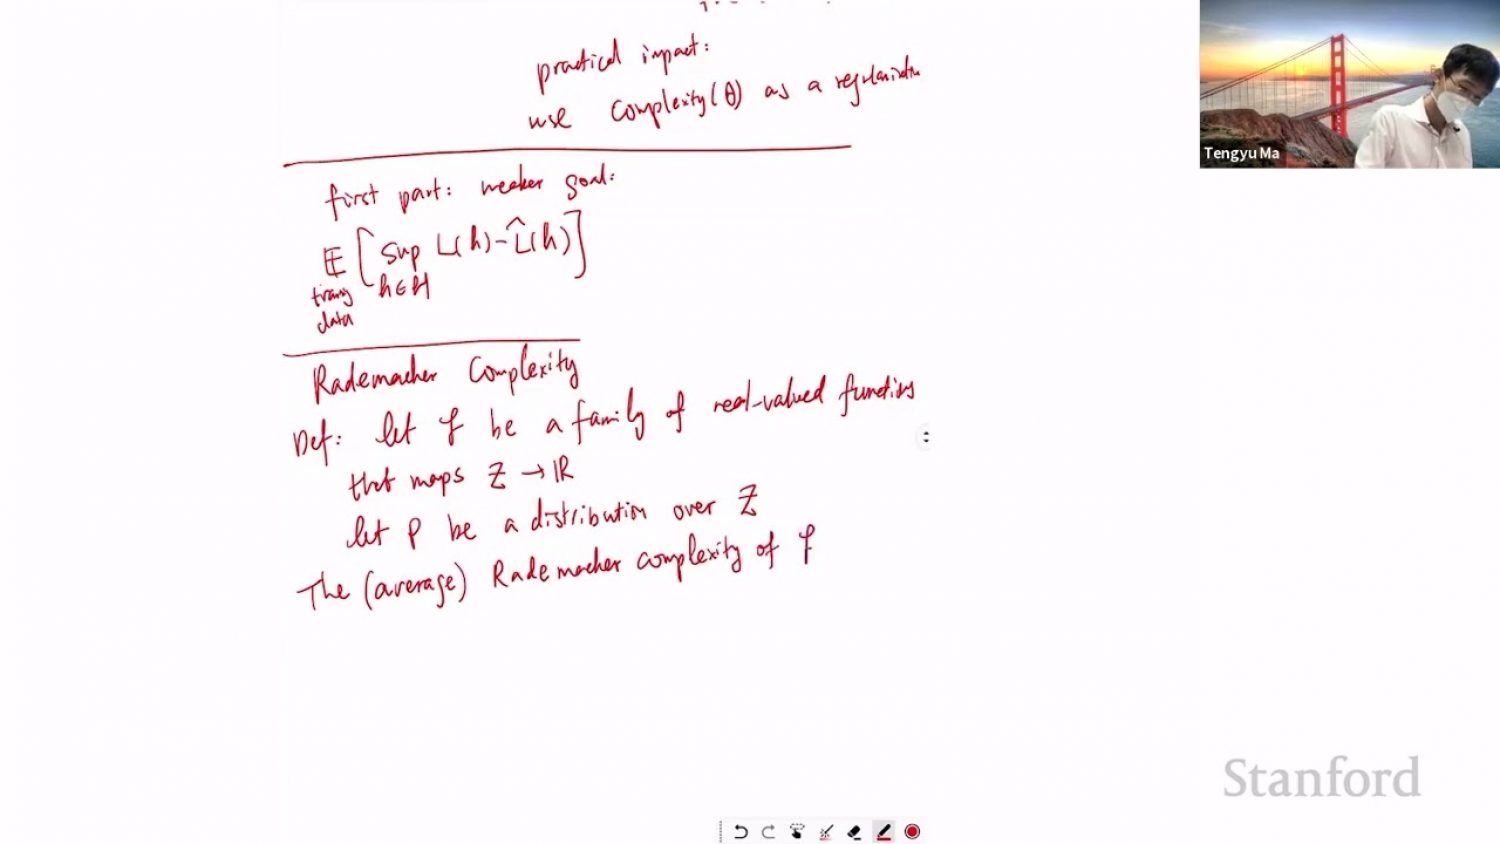 practical impact:
use complexity(θ) as a regularization
first part: weaker goal:
𝔼 [ sup L(h) - L̂(h) ]
training h∈H
data
Rademacher Complexity
Def: let F be a family of real-valued functions
that maps Z → ℝ
let P be a distribution over Z
The (average) Rademacher complexity of F
Tengyu Ma
Stanford